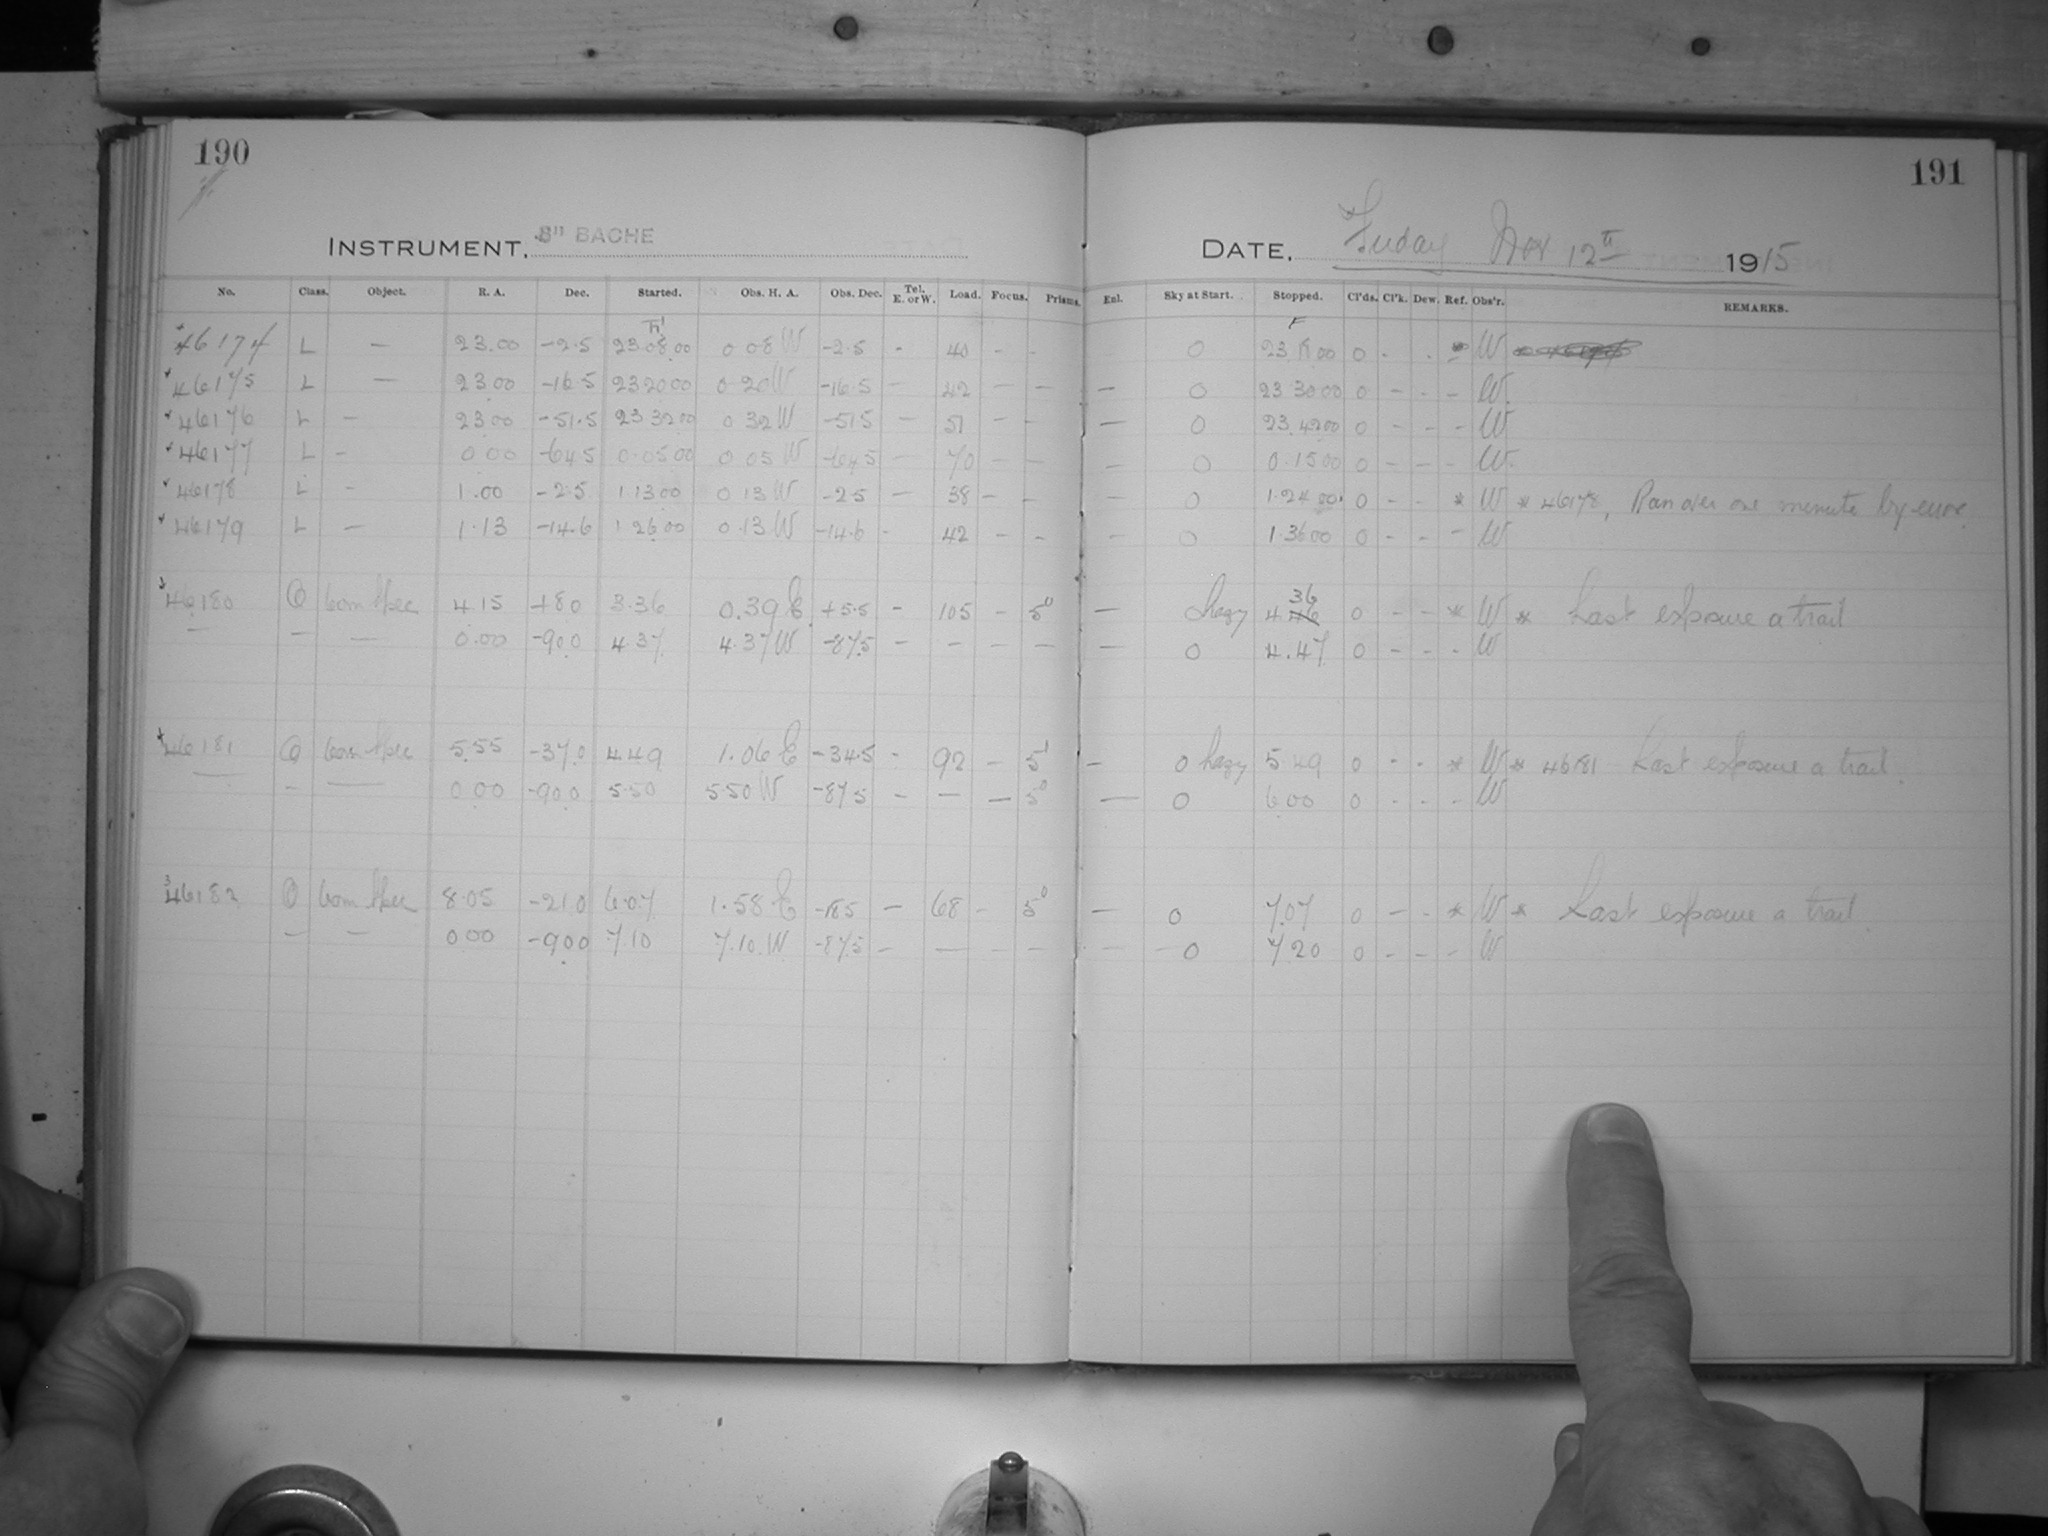 190
191
INSTRUMENT, 8" BACHE
DATE, Friday Nov 12th 1915
No. Class. Object. R. A. Dec. Started. Obs. H. A. Obs. Dec. Tel. E. or W. Load. Focus. Prisms. Enl. Sky at Start. Stopped. Cl'ds. Cl'k. Dew. Ref. Obs'r. REMARKS.
46174 L — 23.00 -2.5 23 08 00 0 08 W -2.5 - 40 - - 0 23 00 0 - - * W
46175 L — 23 00 -16.5 23 20 00 0 20 W -16.5 — 42 — — — 0 23 30 00 0 - - - W.
46176 L — 23 00 -51.5 23 32 00 0 32 W -51.5 — 51 - - — 0 23 42 00 0 - - - W
46177 L - 0 00 -64.5 0.05 00 0 05 W -64.5 — 70 — — — 0 0.15 00 0 - - - W.
46178 L - 1.00 -2.5 1 13 00 0 13 W -2.5 — 38 - - — 0 1.24 00 0 - - * W * 46178, Ran over one minute by error.
46179 L — 1.13 -14.6 1 26 00 0.13 W -14.6 - 42 - - — 0 1.36 00 0 - - - W
46180 Com Spec 4.15 +8.0 3.36 0.39 E +5.5 - 105 - 5° — hazy 4 36 0 - - * W * Last exposure a trail
— — 0.00 -90.0 4.37 4.37 W -87.5 — — — — — 0 4.47 0 - - - W
46181 Com Spec 5.55 -37.0 4 49 1.06 E -34.5 - 92 - 5 - 0 hazy 5 49 0 - - * W * 46181 Last exposure a trail.
- — 0.00 -90.0 5.50 5 50 W -87.5 - — — 5° — 0 6 00 0 - - - W
46182 Com Spec 8.05 -21.0 6.07 1.58 E -18.5 — 68 - 5° — 0 7.07 0 - - * W * Last exposure a trail.
— — 0 00 -90.0 7.10 7.10 W -87.5 - — — — — 0 7 20 0 - - - W